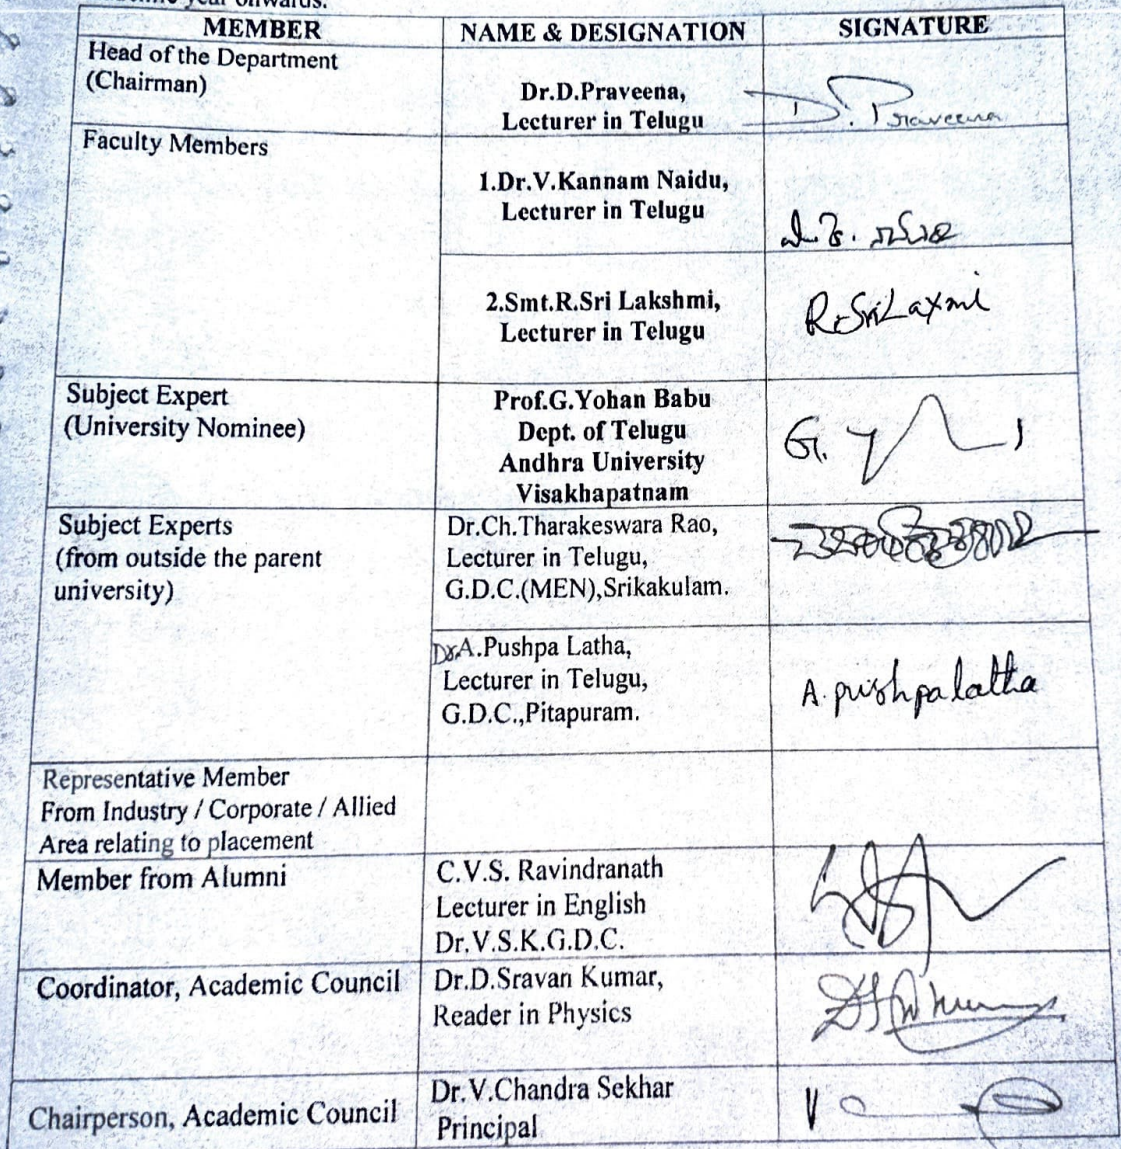 year onwards.
MEMBER NAME & DESIGNATION SIGNATURE
Head of the Department
(Chairman)
Dr.D.Praveena,
Lecturer in Telugu
D. Praveena
Faculty Members
1.Dr.V.Kannam Naidu,
Lecturer in Telugu
2.Smt.R.Sri Lakshmi,
Lecturer in Telugu
R.SriLaxmi
Subject Expert
(University Nominee)
Prof.G.Yohan Babu
Dept. of Telugu
Andhra University
Visakhapatnam
G. Y
Subject Experts
(from outside the parent
university)
Dr.Ch.Tharakeswara Rao,
Lecturer in Telugu,
G.D.C.(MEN),Srikakulam.
Dr.A.Pushpa Latha,
Lecturer in Telugu,
G.D.C.,Pitapuram.
A. pushpalatha
Representative Member
From Industry / Corporate / Allied
Area relating to placement
Member from Alumni
C.V.S. Ravindranath
Lecturer in English
Dr.V.S.K.G.D.C.
Coordinator, Academic Council
Dr.D.Sravan Kumar,
Reader in Physics
Chairperson, Academic Council
Dr.V.Chandra Sekhar
Principal